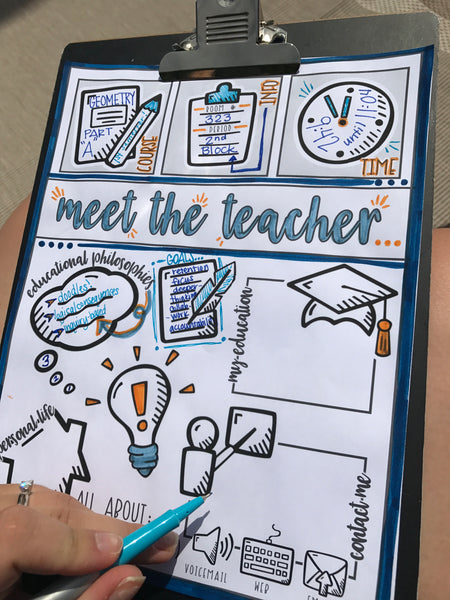 GEOMETRY
PART
"A"
COURSE
ROOM #
323
PERIOD
2nd
Block
INFO
until
TIME
meet the teacher
educational philosophies
doodles!
logical consequences
inquiry-based
3
2
1
GOALS...
retention
focus
deeper
thinking
collab.
work
accountability
my education
personal life
ALL ABOUT:
contact me
VOICEMAIL
WEB